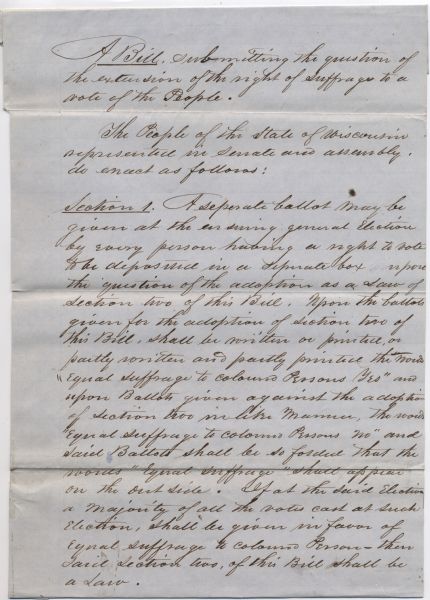 A Bill, submitting the question of
the extension of the right of suffrage to a
vote of the People.
The People of the State of Wisconsin
represented in Senate and assembly.
do enact as follows:
Section 1. A seperate ballot may be
given at the ensuing general Election
by every person having a right to vote
to be deposited in a seperate box upon
the question of the adoption as a Law of
Section two of this Bill. Upon the ballots
given for the adoption of Section two of
this Bill, shall be written or printed, or
partly written and partly printed the words
"Equal suffrage to colored Persons Yes" and
upon Ballots given against the adoption
of Section two in like Manner, the words
"Equal Suffrage to colored Persons No" and
said Ballots shall be so folded that the
words "Equal Suffrage" shall appear
on the out side. If at the said Election
a Majority of all the votes cast at such
Election, shall be given in favor of
Equal Suffrage to colored Person - then
said Section two, of this Bill shall be
a Law.